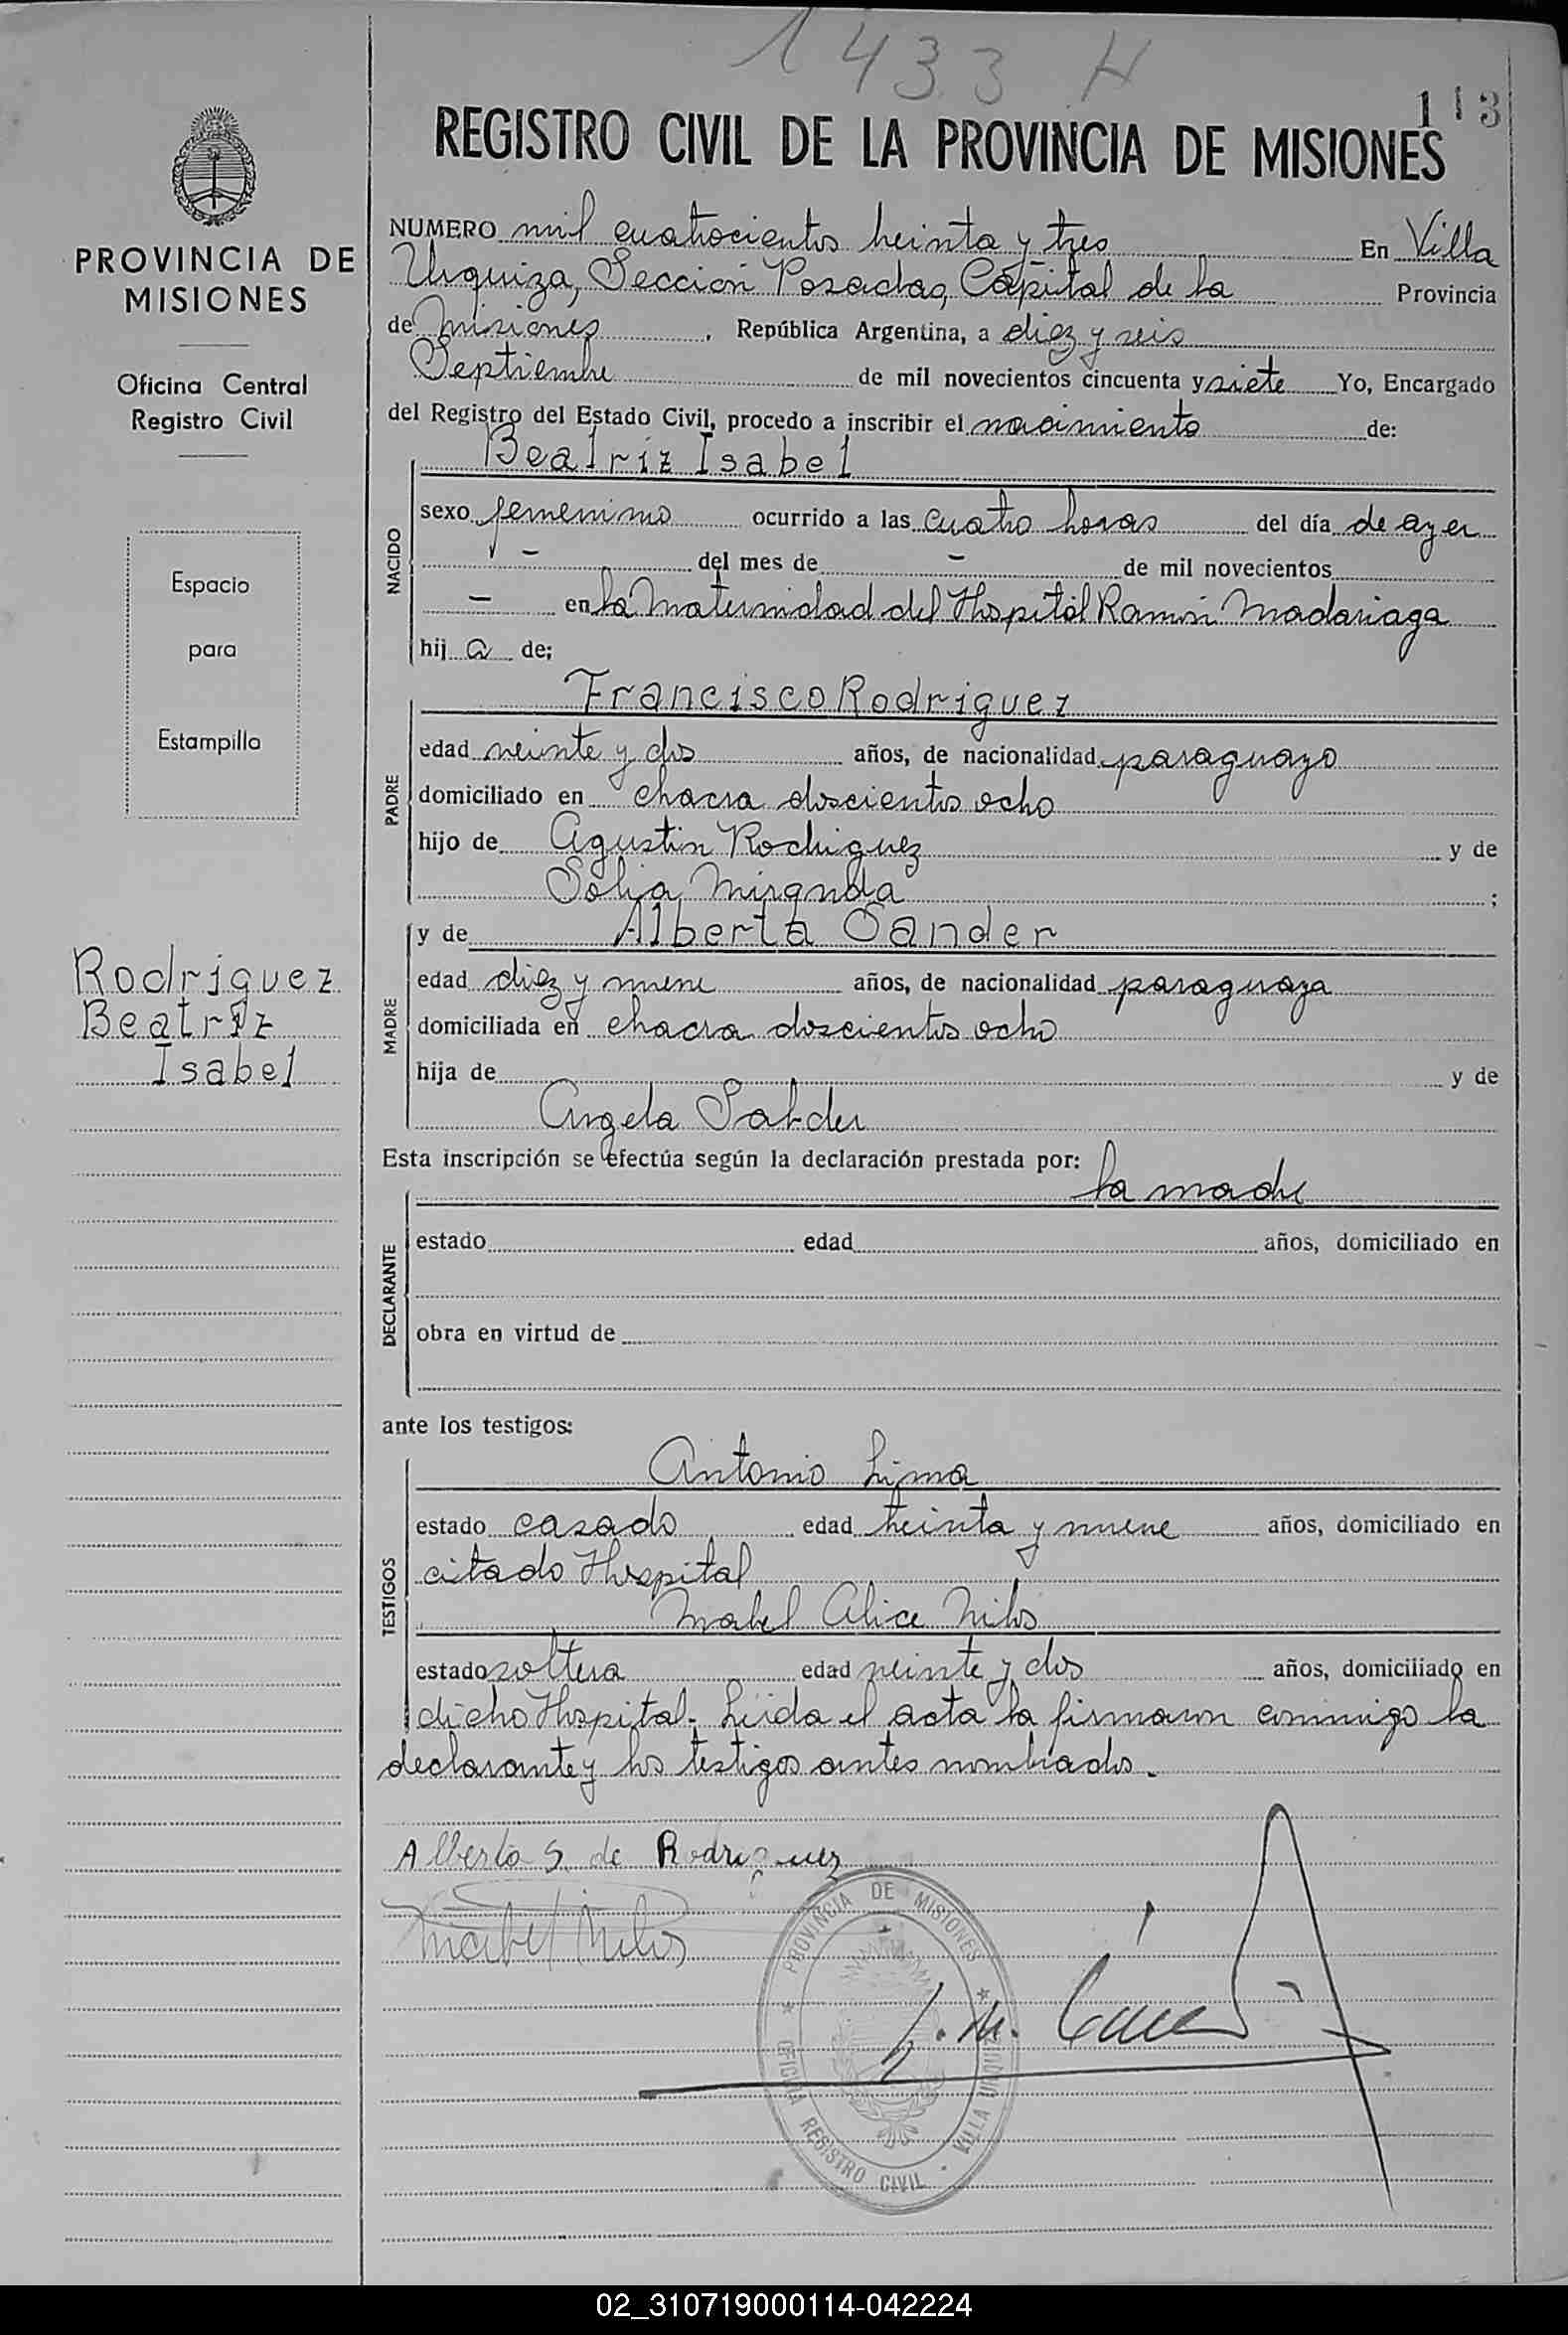 1433 H
113
REGISTRO CIVIL DE LA PROVINCIA DE MISIONES
PROVINCIA DE
MISIONES
Oficina Central
Registro Civil
Espacio
para
Estampilla
Rodriguez
Beatriz
Isabel
NUMERO mil cuatrocientos treinta y tres En Villa
Urquiza, Sección Posadas, Capital de la Provincia
de Misiones, República Argentina, a diez y seis
Septiembre de mil novecientos cincuenta y siete Yo, Encargado
del Registro del Estado Civil, procedo a inscribir el nacimiento de:
Beatriz Isabel
NACIDO
sexo femenino ocurrido a las cuatro horas del día de ayer
- del mes de - de mil novecientos
- en la Maternidad del Hospital Ramón Madariaga
hij a de;
Francisco Rodriguez
PADRE
edad veinte y dos años, de nacionalidad paraguayo
domiciliado en chacra doscientos ocho
hijo de Agustin Rodriguez y de
Miranda ;
y de Alberta Sander
MADRE
edad diez y nueve años, de nacionalidad paraguaya
domiciliada en chacra doscientos ocho
hija de y de
Angela
Esta inscripción se efectúa según la declaración prestada por:
la madre
DECLARANTE
estado edad años, domiciliado en
obra en virtud de
ante los testigos:
Antonio Lima
TESTIGOS
estado casado edad treinta y nueve años, domiciliado en
citado Hospital
Mabel Alice
estado soltera edad veinte y dos años, domiciliado en
dicho Hospital. Leida el acta la firmaron conmigo la
declarante y los testigos antes nombrados.
Alberta S. de Rodriguez
Mabel
PROVINCIA DE MISIONES
OFICINA REGISTRO CIVIL - VILLA URQUIZA
02_310719000114-042224